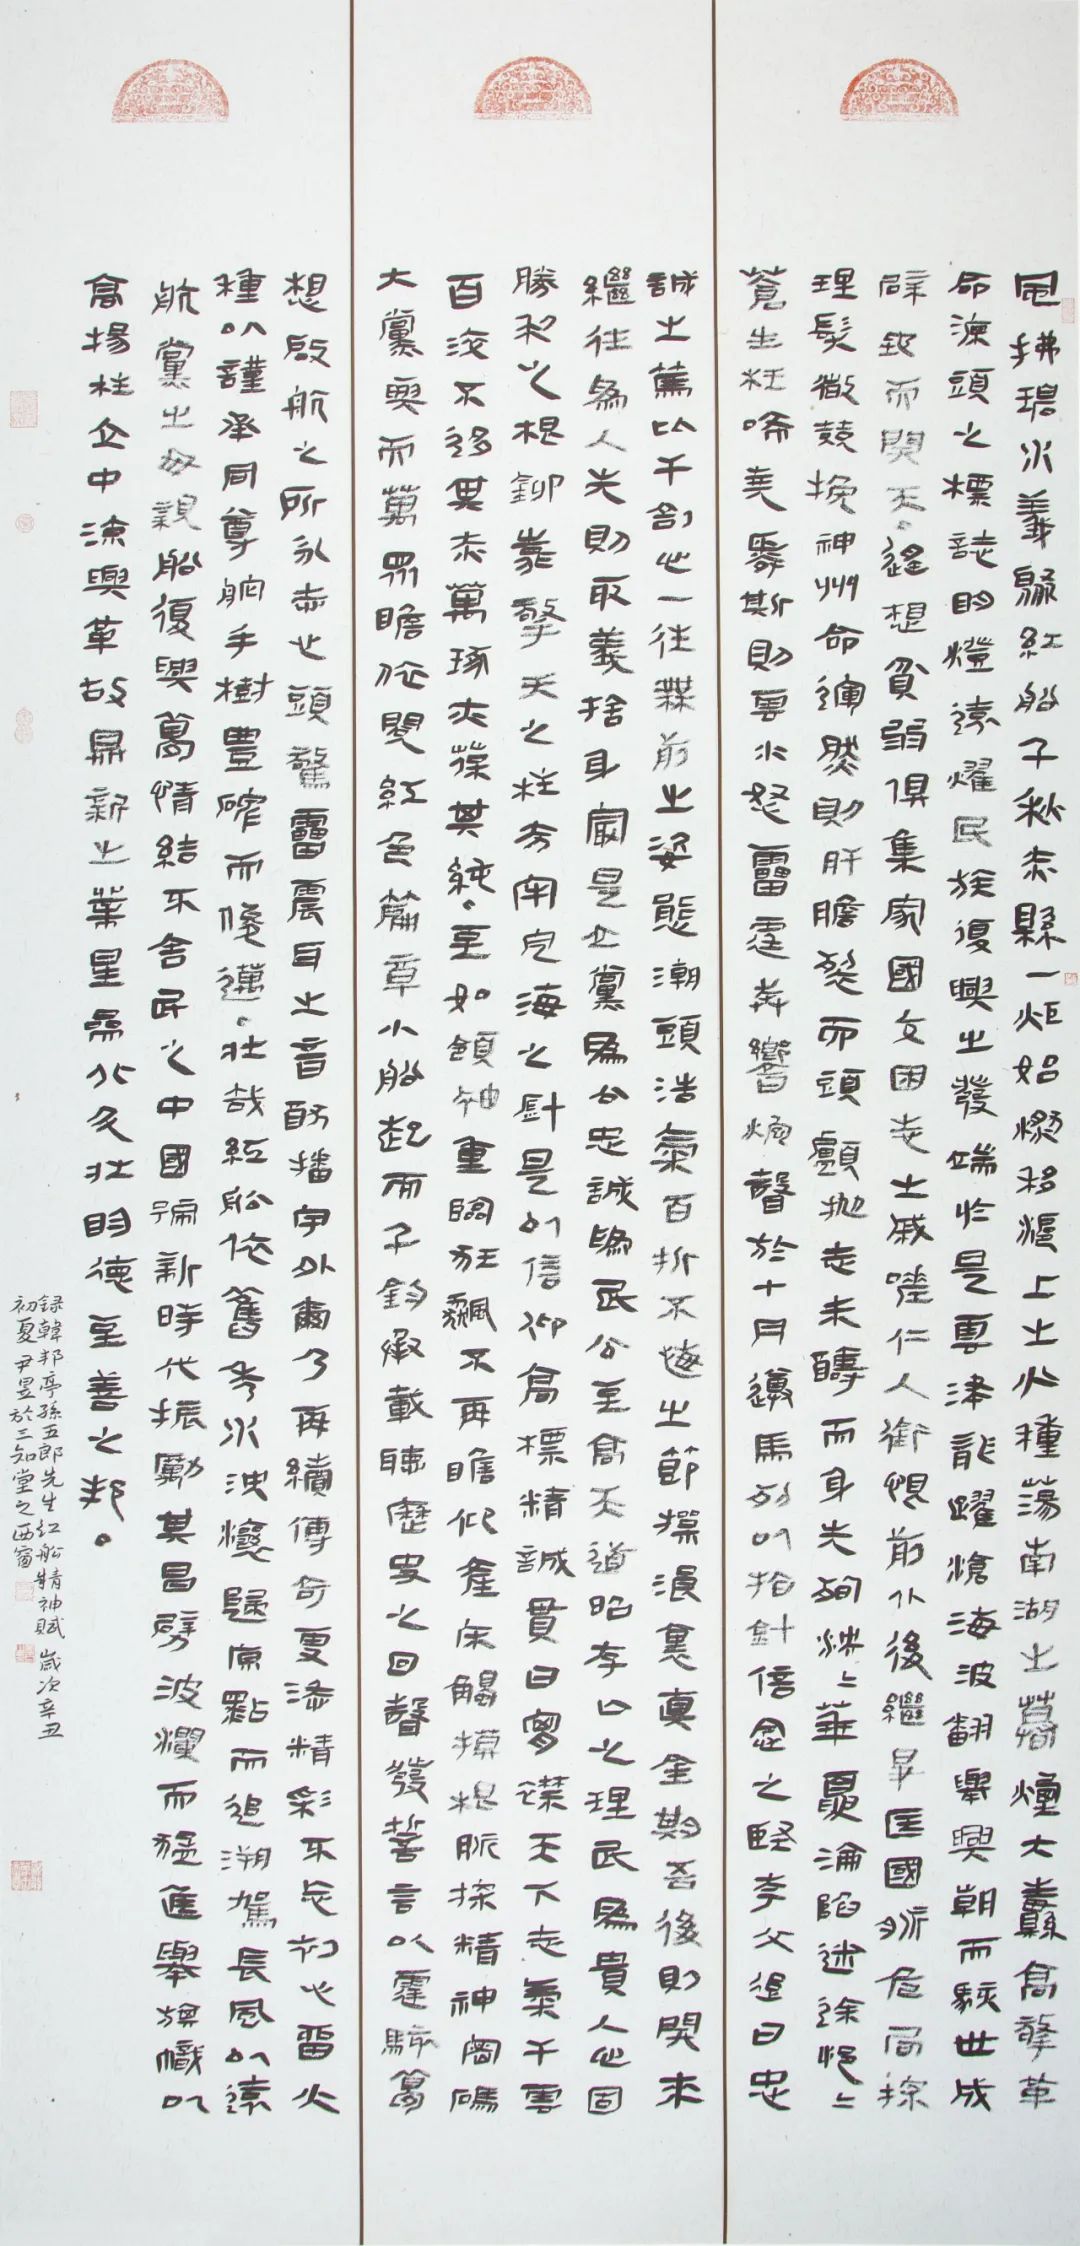 風拂碧水義聚紅船千秋赤縣一炬始燃移滬上之火種蕩南湖之暮煙大纛高擎革
命源頭之標誌明燈遠耀民族復興之發端於是雲津龍躍滄海波翻舉興朝而駭世成
辟政而開天遙想貧弱俱集家國交困志士戚嗟仁人銜恨前仆後繼尋匡國脈危局探
理髮徵競挽神州命運然則肝膽裂而頭顱拋志未酬而身先殉燐燐華夏淪陷迷途悒悒
蒼生枉啼美醫斯則雲水怒雷霆奔響煥聲於十月遵馬列以指針信念之堅李父追日忠
誠之篤比干剖心一往無前之姿態潮頭浩氣百折不悔之節操浪裏真金期吾後則開來
繼往為人先則取義捨身家是立黨為公忠誠為民公至高天道昭存以之理民為貴人心固
勝利之根鉚靠擎天之柱旁開定海之針是以信仰高標精誠貫日胸襟天下志氣干雲
百浪不移其赤萬琢末葆其純至如領袖重臨狂飆不再瞻仰產床觸摸根脈探精神密碼
大黨興而萬眾瞻依閱紅色篇章小船起而千鈞承載聽歷史之回聲發誓言以霆駭篤
想啟航之所永志心頭驚雷震耳之音盼播宇外爾乃再續傳奇更添精彩不忘初心留火
種以謹承同尊舵手樹豐碑而俊邁壯哉紅船依舊秀水泱瀁歸原點而追溯駕長風以遠
航黨之母親船復興萬情結不舍民之中國編新時代振勵其昌劈波瀾而猛進舉旗幟以
高揚柱立中流興革故鼎新之業星聚北辰壯明德至善之邦
錄韓邦亭孫五郎先生紅船精神賦歲次辛丑
初夏尹昱於三知堂之西窗